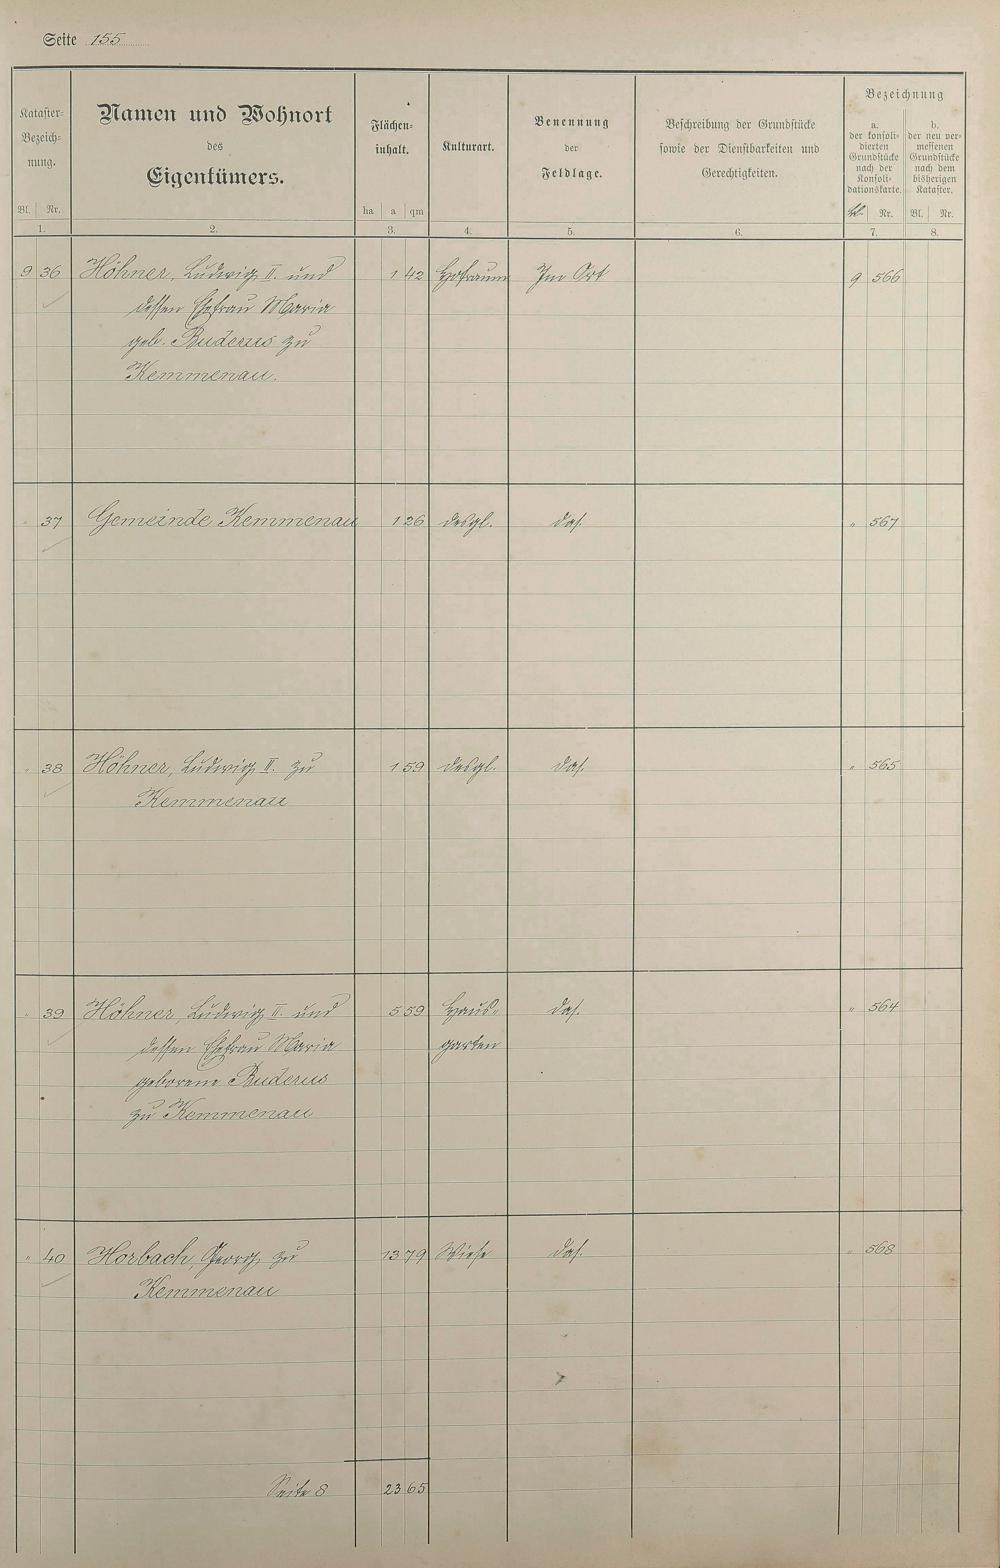 Seite 155
Kataster-Bezeich-nung. Namen und Wohnort des Eigentümers. Flächen-inhalt. Kulturart. Benennung der Feldlage. Beschreibung der Grundstücke sowie der Dienstbarkeiten und Gerechtigkeiten. Bezeichnung
a. der konsoli-dierten Grundstücke nach der Konsoli-dationskarte. b. der neu ver-messenen Grundstücke nach dem bisherigen Kataster.
Bl. Nr. ha a qm Bl. Nr. Bl. Nr.
1. 2. 3. 4. 5. 6. 7. 8.
9 36 Höhner, Ludwig II. und 1 42 Hofraum Im Ort 9 566
dessen Ehefrau Maria
geb. Buderus zu
Kemmenau.
" 37 Gemeinde Kemmenau 1 26 desgl. das. " 567
" 38 Höhner, Ludwig II. zu 1 59 desgl. das. " 565
Kemmenau
" 39 Höhner, Ludwig II. und 5 59 Haus- das. " 564
dessen Ehefrau Maria garten
geborene Buderus
zu Kemmenau
" 40 Horbach, Georg zu 13 79 Wiese das. " 568
Kemmenau
Seite 8 23 65